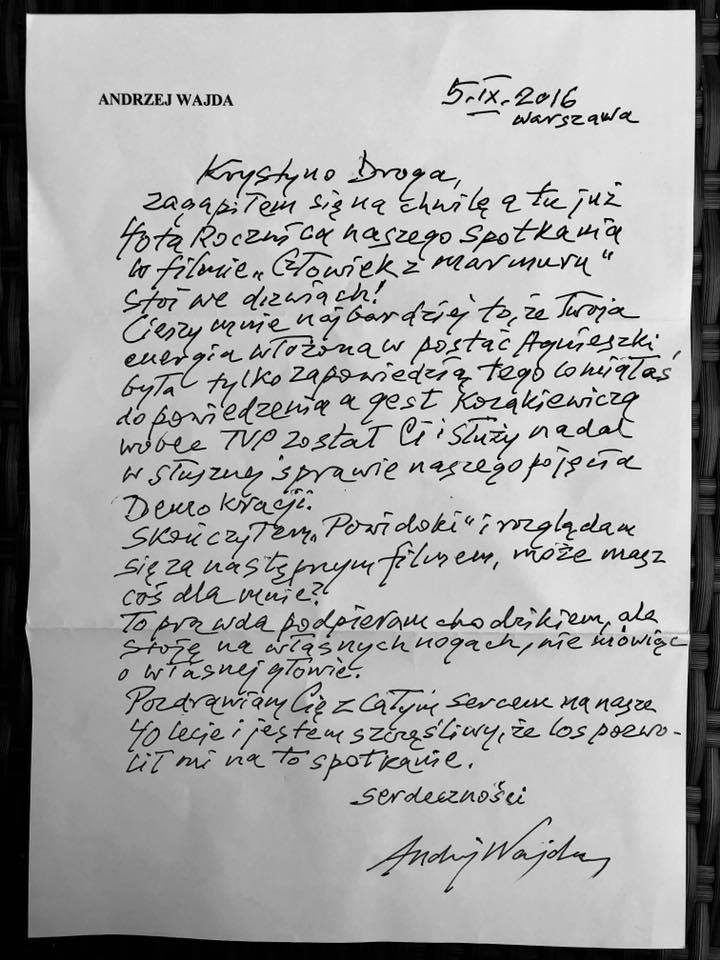 ANDRZEJ WAJDA
5.IX.2016
Warszawa
Krystyno Droga,
zagapiłem się na chwilę a tu już
40ta Rocznica naszego spotkania
w filmie „Człowiek z marmuru"
stoi we drzwiach!
Cieszy mnie najbardziej to, że Twoja
energia włożona w postać Agnieszki,
była tylko zapowiedzią tego co miałaś
do powiedzenia a gest Kozakiewicza
wobec TVP został Ci i służy nadal
w słusznej sprawie naszego pojęcia
Demokracji.
Skończyłem „Powidoki" i rozglądam
się za następnym filmem, może masz
coś dla mnie?
To prawda podpieram chodzikiem, ale
stoję na własnych nogach, nie mówiąc
o własnej głowie.
Pozdrawiam Cię z całym sercem na nasze
40 lecie i jestem szczęśliwy, że los pozwo-
lił mi na to spotkanie.
serdeczności
Andrzej Wajda